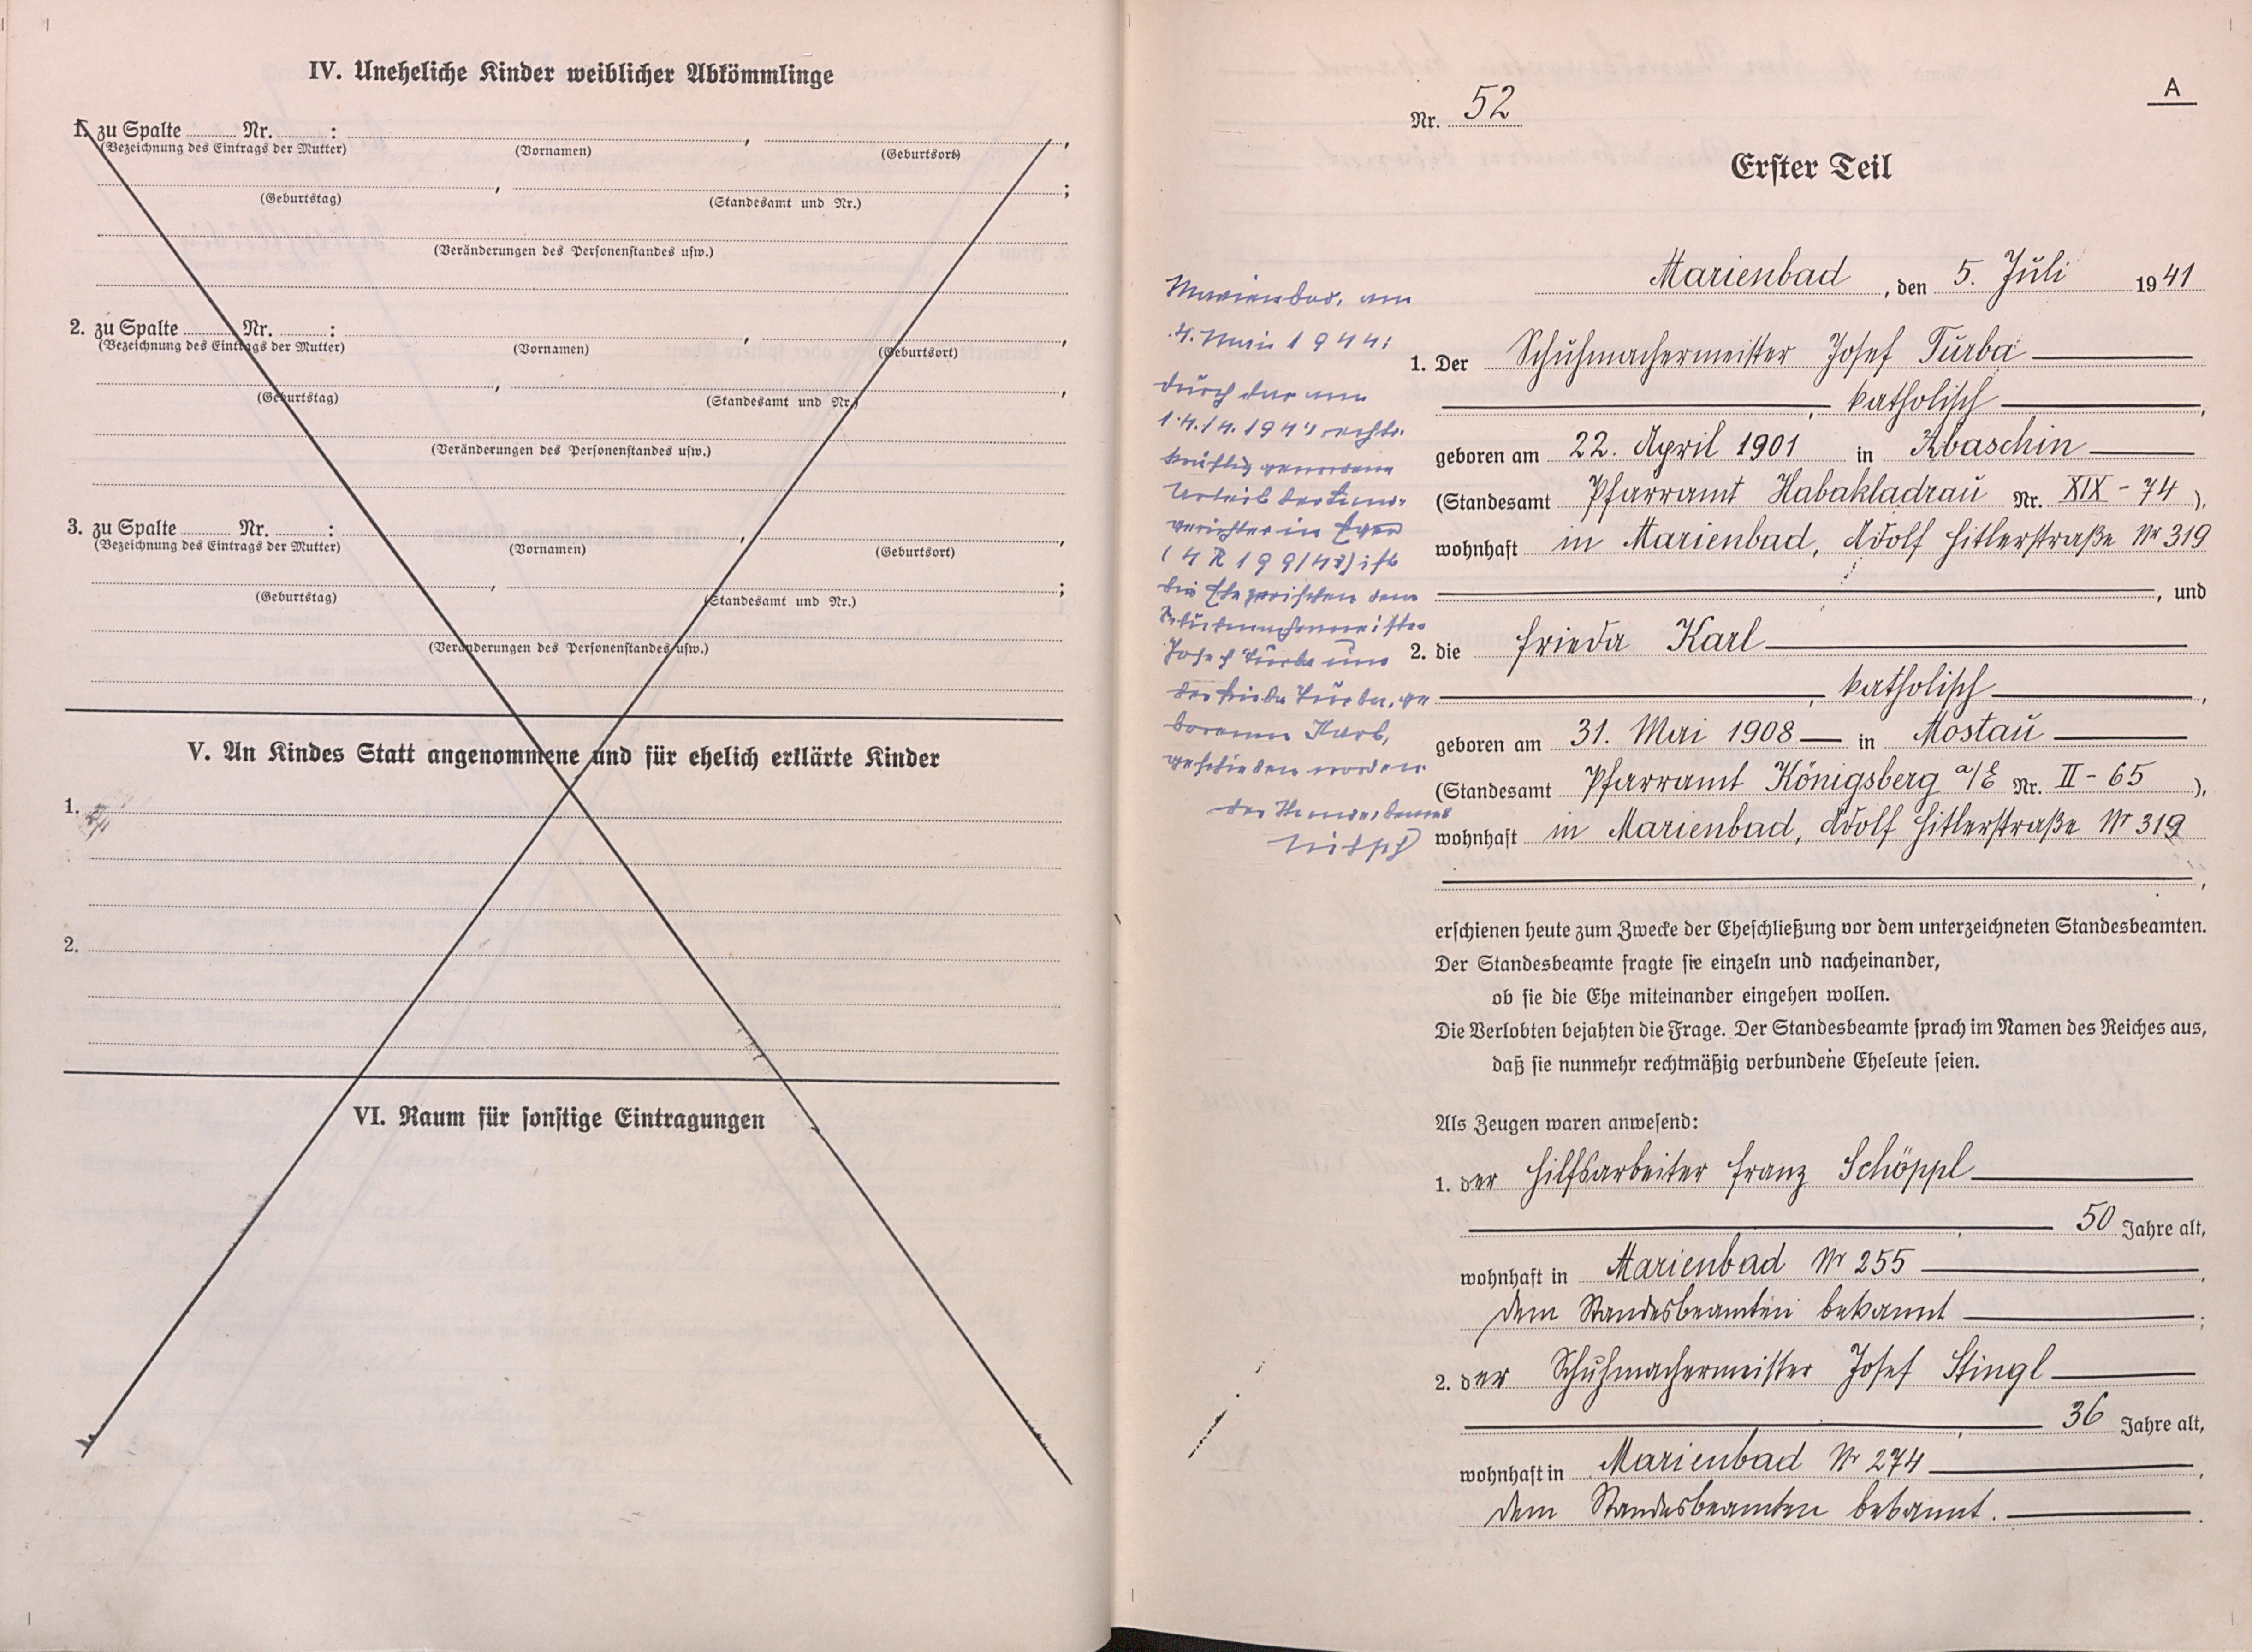 IV. Uneheliche Kinder weiblicher Abkömmlinge
1. zu Spalte ........ Nr. ........ : ........, ........,
(Bezeichnung des Eintrags der Mutter) (Vornamen) (Geburtsort)
(Geburtstag) (Standesamt und Nr.)
(Veränderungen des Personenstandes usw.)
2. zu Spalte ........ Nr. ........ : ........, ........,
(Bezeichnung des Eintrags der Mutter) (Vornamen) (Geburtsort)
(Geburtstag) (Standesamt und Nr.)
(Veränderungen des Personenstandes usw.)
3. zu Spalte ........ Nr. ........ : ........, ........,
(Bezeichnung des Eintrags der Mutter) (Vornamen) (Geburtsort)
(Geburtstag) (Standesamt und Nr.)
(Veränderungen des Personenstandes usw.)
V. An Kindes Statt angenommene und für ehelich erklärte Kinder
1.
2.
VI. Raum für sonstige Eintragungen
A
Nr. 52
Erster Teil
Marienbad, den 5. Juli 1941
1. Der Schuhmachermeister Josef Turba
katholisch,
geboren am 22. April 1901 in Abaschin
(Standesamt Pfarramt Habakladrau Nr. XIX - 74 ),
wohnhaft in Marienbad, Adolf Hitlerstraße Nr 319
, und
2. die Frieda Karl
, katholisch,
geboren am 31. Mai 1908 in Mostau
(Standesamt Pfarramt Königsberg a/E Nr. II - 65 ),
wohnhaft in Marienbad, Adolf Hitlerstraße Nr 319
,
erschienen heute zum Zwecke der Eheschließung vor dem unterzeichneten Standesbeamten.
Der Standesbeamte fragte sie einzeln und nacheinander,
ob sie die Ehe miteinander eingehen wollen.
Die Verlobten bejahten die Frage. Der Standesbeamte sprach im Namen des Reiches aus,
daß sie nunmehr rechtmäßig verbundene Eheleute seien.
Als Zeugen waren anwesend:
1. der Hilfsarbeiter Franz Schöppl
50 Jahre alt,
wohnhaft in Marienbad Nr 255,
dem Standesbeamten bekannt;
2. der Schuhmachermeister Josef Stingl
36 Jahre alt,
wohnhaft in Marienbad Nr 274,
dem Standesbeamten bekannt.
Marienbad, am
4. Mai 1944:
Durch das am
14./4. 1944 rechts-
kräftig gewordene
Urteil des Land-
gerichtes in Eger
(4 R 199/43) ist
die Ehe zwischen dem
Schuhmachermeister
Josef Turba und
der Frieda Turba, ge-
borenen Karl,
geschieden worden.
Der Standesbeamte